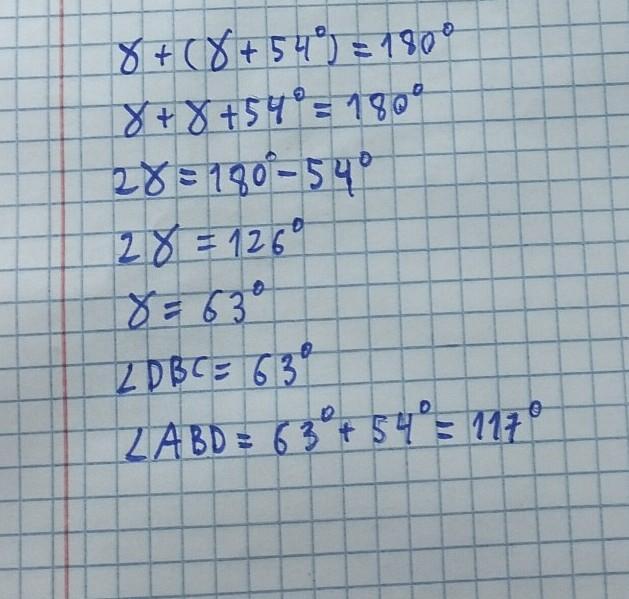 γ + (γ + 54°) = 180°
γ + γ + 54° = 180°
2γ = 180° - 54°
2γ = 126°
γ = 63°
∠DBC = 63°
∠ABD = 63° + 54° = 117°